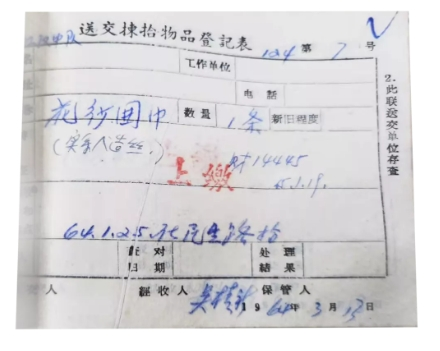 送交揀拾物品登記表
124 第 7 号
工作单位
电 話
花纱围巾 数量 1条 新旧程度
(实系人造丝)
上缴
财14445
65.1.19.
64.1.25.在民生路拾
日 期 处理結果
人 經收人 保管人
1964年3月13日
2.此联送交单位存查